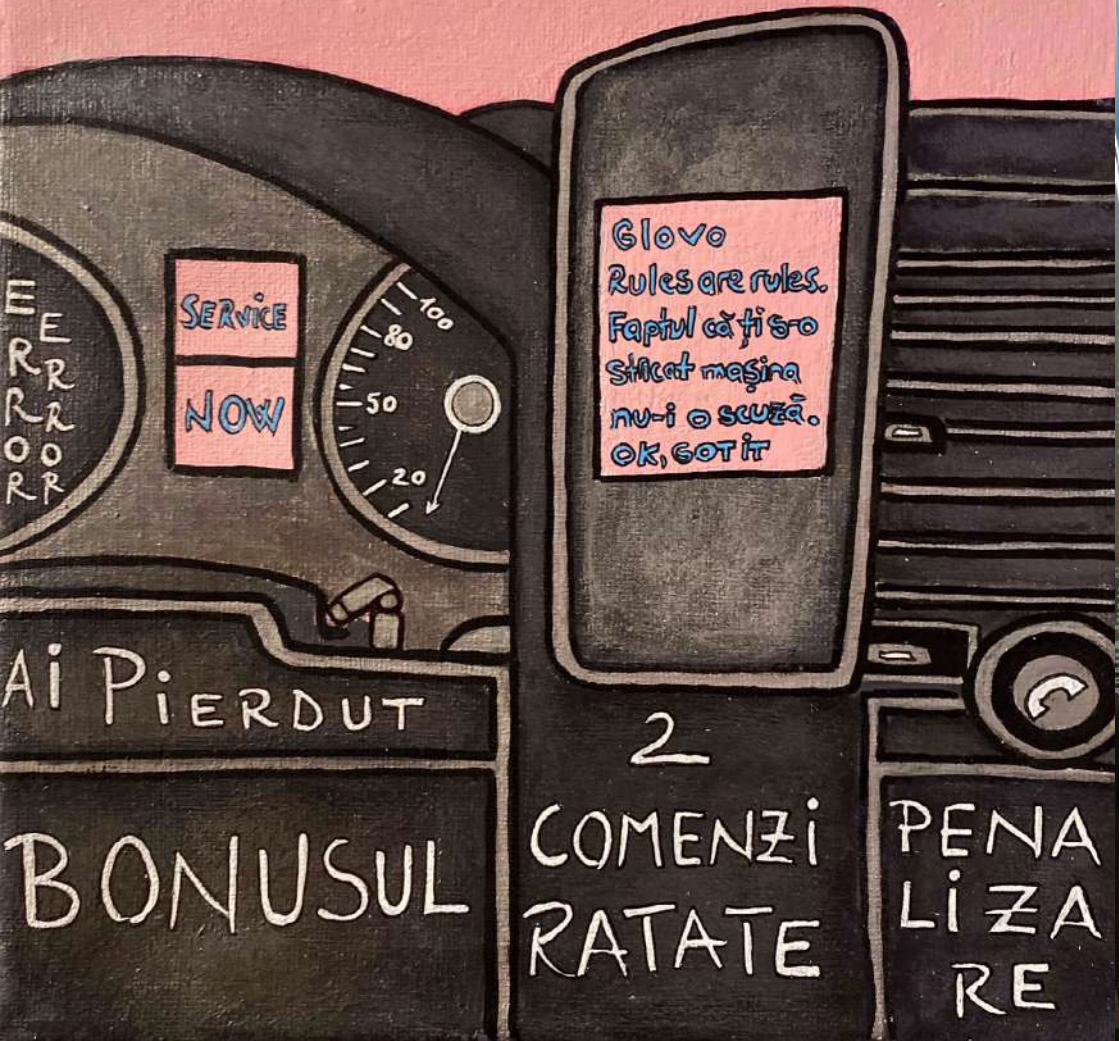 ERROR
ERROR
SERVICE
NOW
100
80
50
20
Glovo
Rules are rules.
Faptul că ți s-a
stricat mașina
nu-i o scuză.
OK, GOT iT
Ai PiERDUT
BONUSUL
2
COMENZi
RATATE
PENA
LiZA
RE